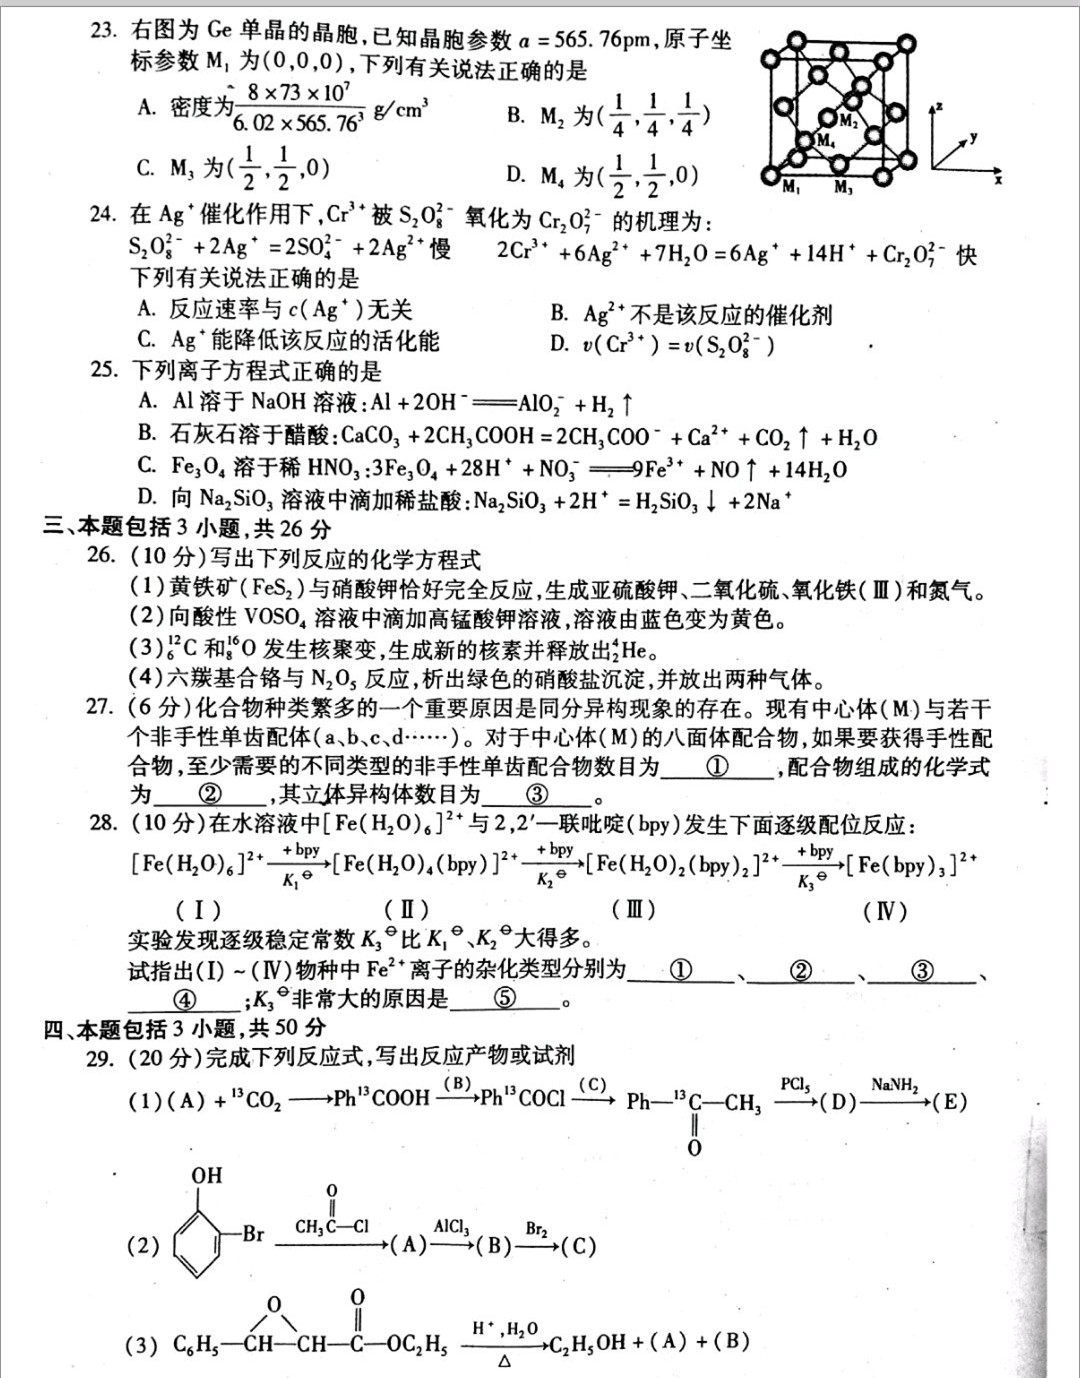 23. 右图为 Ge 单晶的晶胞,已知晶胞参数 a = 565.76pm,原子坐
标参数 M₁ 为(0,0,0),下列有关说法正确的是
A. 密度为 8×73×10⁷/6.02×565.76³ g/cm³ B. M₂ 为(1/4,1/4,1/4)
C. M₃ 为(1/2,1/2,0) D. M₄ 为(1/2,1/2,0)
M₂
M₄
M₁ M₃
z
y
x
24. 在 Ag⁺催化作用下,Cr³⁺被 S₂O₈²⁻ 氧化为 Cr₂O₇²⁻ 的机理为:
S₂O₈²⁻ +2Ag⁺ =2SO₄²⁻ +2Ag²⁺慢 2Cr³⁺ +6Ag²⁺ +7H₂O =6Ag⁺ +14H⁺ +Cr₂O₇²⁻ 快
下列有关说法正确的是
A. 反应速率与 c(Ag⁺)无关 B. Ag²⁺不是该反应的催化剂
C. Ag⁺能降低该反应的活化能 D. v(Cr³⁺) =v(S₂O₈²⁻)
25. 下列离子方程式正确的是
A. Al 溶于 NaOH 溶液:Al +2OH⁻══AlO₂⁻ +H₂↑
B. 石灰石溶于醋酸:CaCO₃ +2CH₃COOH =2CH₃COO⁻ +Ca²⁺ +CO₂↑ +H₂O
C. Fe₃O₄ 溶于稀 HNO₃:3Fe₃O₄ +28H⁺ +NO₃⁻ ══9Fe³⁺ +NO↑ +14H₂O
D. 向 Na₂SiO₃ 溶液中滴加稀盐酸:Na₂SiO₃ +2H⁺ =H₂SiO₃↓ +2Na⁺
三、本题包括 3 小题,共 26 分
26. (10 分)写出下列反应的化学方程式
(1)黄铁矿(FeS₂)与硝酸钾恰好完全反应,生成亚硫酸钾、二氧化硫、氧化铁(Ⅲ)和氮气。
(2)向酸性 VOSO₄ 溶液中滴加高锰酸钾溶液,溶液由蓝色变为黄色。
(3)¹²₆C 和¹⁶₈O 发生核聚变,生成新的核素并释放出⁴₂He。
(4)六羰基合铬与 N₂O₅ 反应,析出绿色的硝酸盐沉淀,并放出两种气体。
27. (6 分)化合物种类繁多的一个重要原因是同分异构现象的存在。现有中心体(M)与若干
个非手性单齿配体(a、b、c、d……)。对于中心体(M)的八面体配合物,如果要获得手性配
合物,至少需要的不同类型的非手性单齿配合物数目为____①____,配合物组成的化学式
为____②____,其立体异构体数目为____③____。
28. (10 分)在水溶液中[Fe(H₂O)₆]²⁺与 2,2′—联吡啶(bpy)发生下面逐级配位反应:
[Fe(H₂O)₆]²⁺ —+bpy/K₁⊖→ [Fe(H₂O)₄(bpy)]²⁺ —+bpy/K₂⊖→ [Fe(H₂O)₂(bpy)₂]²⁺ —+bpy/K₃⊖→ [Fe(bpy)₃]²⁺
(Ⅰ) (Ⅱ) (Ⅲ) (Ⅳ)
实验发现逐级稳定常数 K₃⊖比 K₁⊖、K₂⊖大得多。
试指出(Ⅰ) ~ (Ⅳ)物种中 Fe²⁺离子的杂化类型分别为____①____、____②____、____③____、
____④____;K₃⊖非常大的原因是____⑤____。
四、本题包括 3 小题,共 50 分
29. (20 分)完成下列反应式,写出反应产物或试剂
(1)(A) + ¹³CO₂ ⟶ Ph¹³COOH —(B)→ Ph¹³COCl —(C)→ Ph—¹³C—CH₃ —PCl₅→ (D) —NaNH₂→ (E)
O
OH
O
(2) Br CH₃C—Cl → (A) —AlCl₃→ (B) —Br₂→ (C)
O O
(3) C₆H₅—CH—CH—C—OC₂H₅ —H⁺,H₂O/△→ C₂H₅OH + (A) + (B)